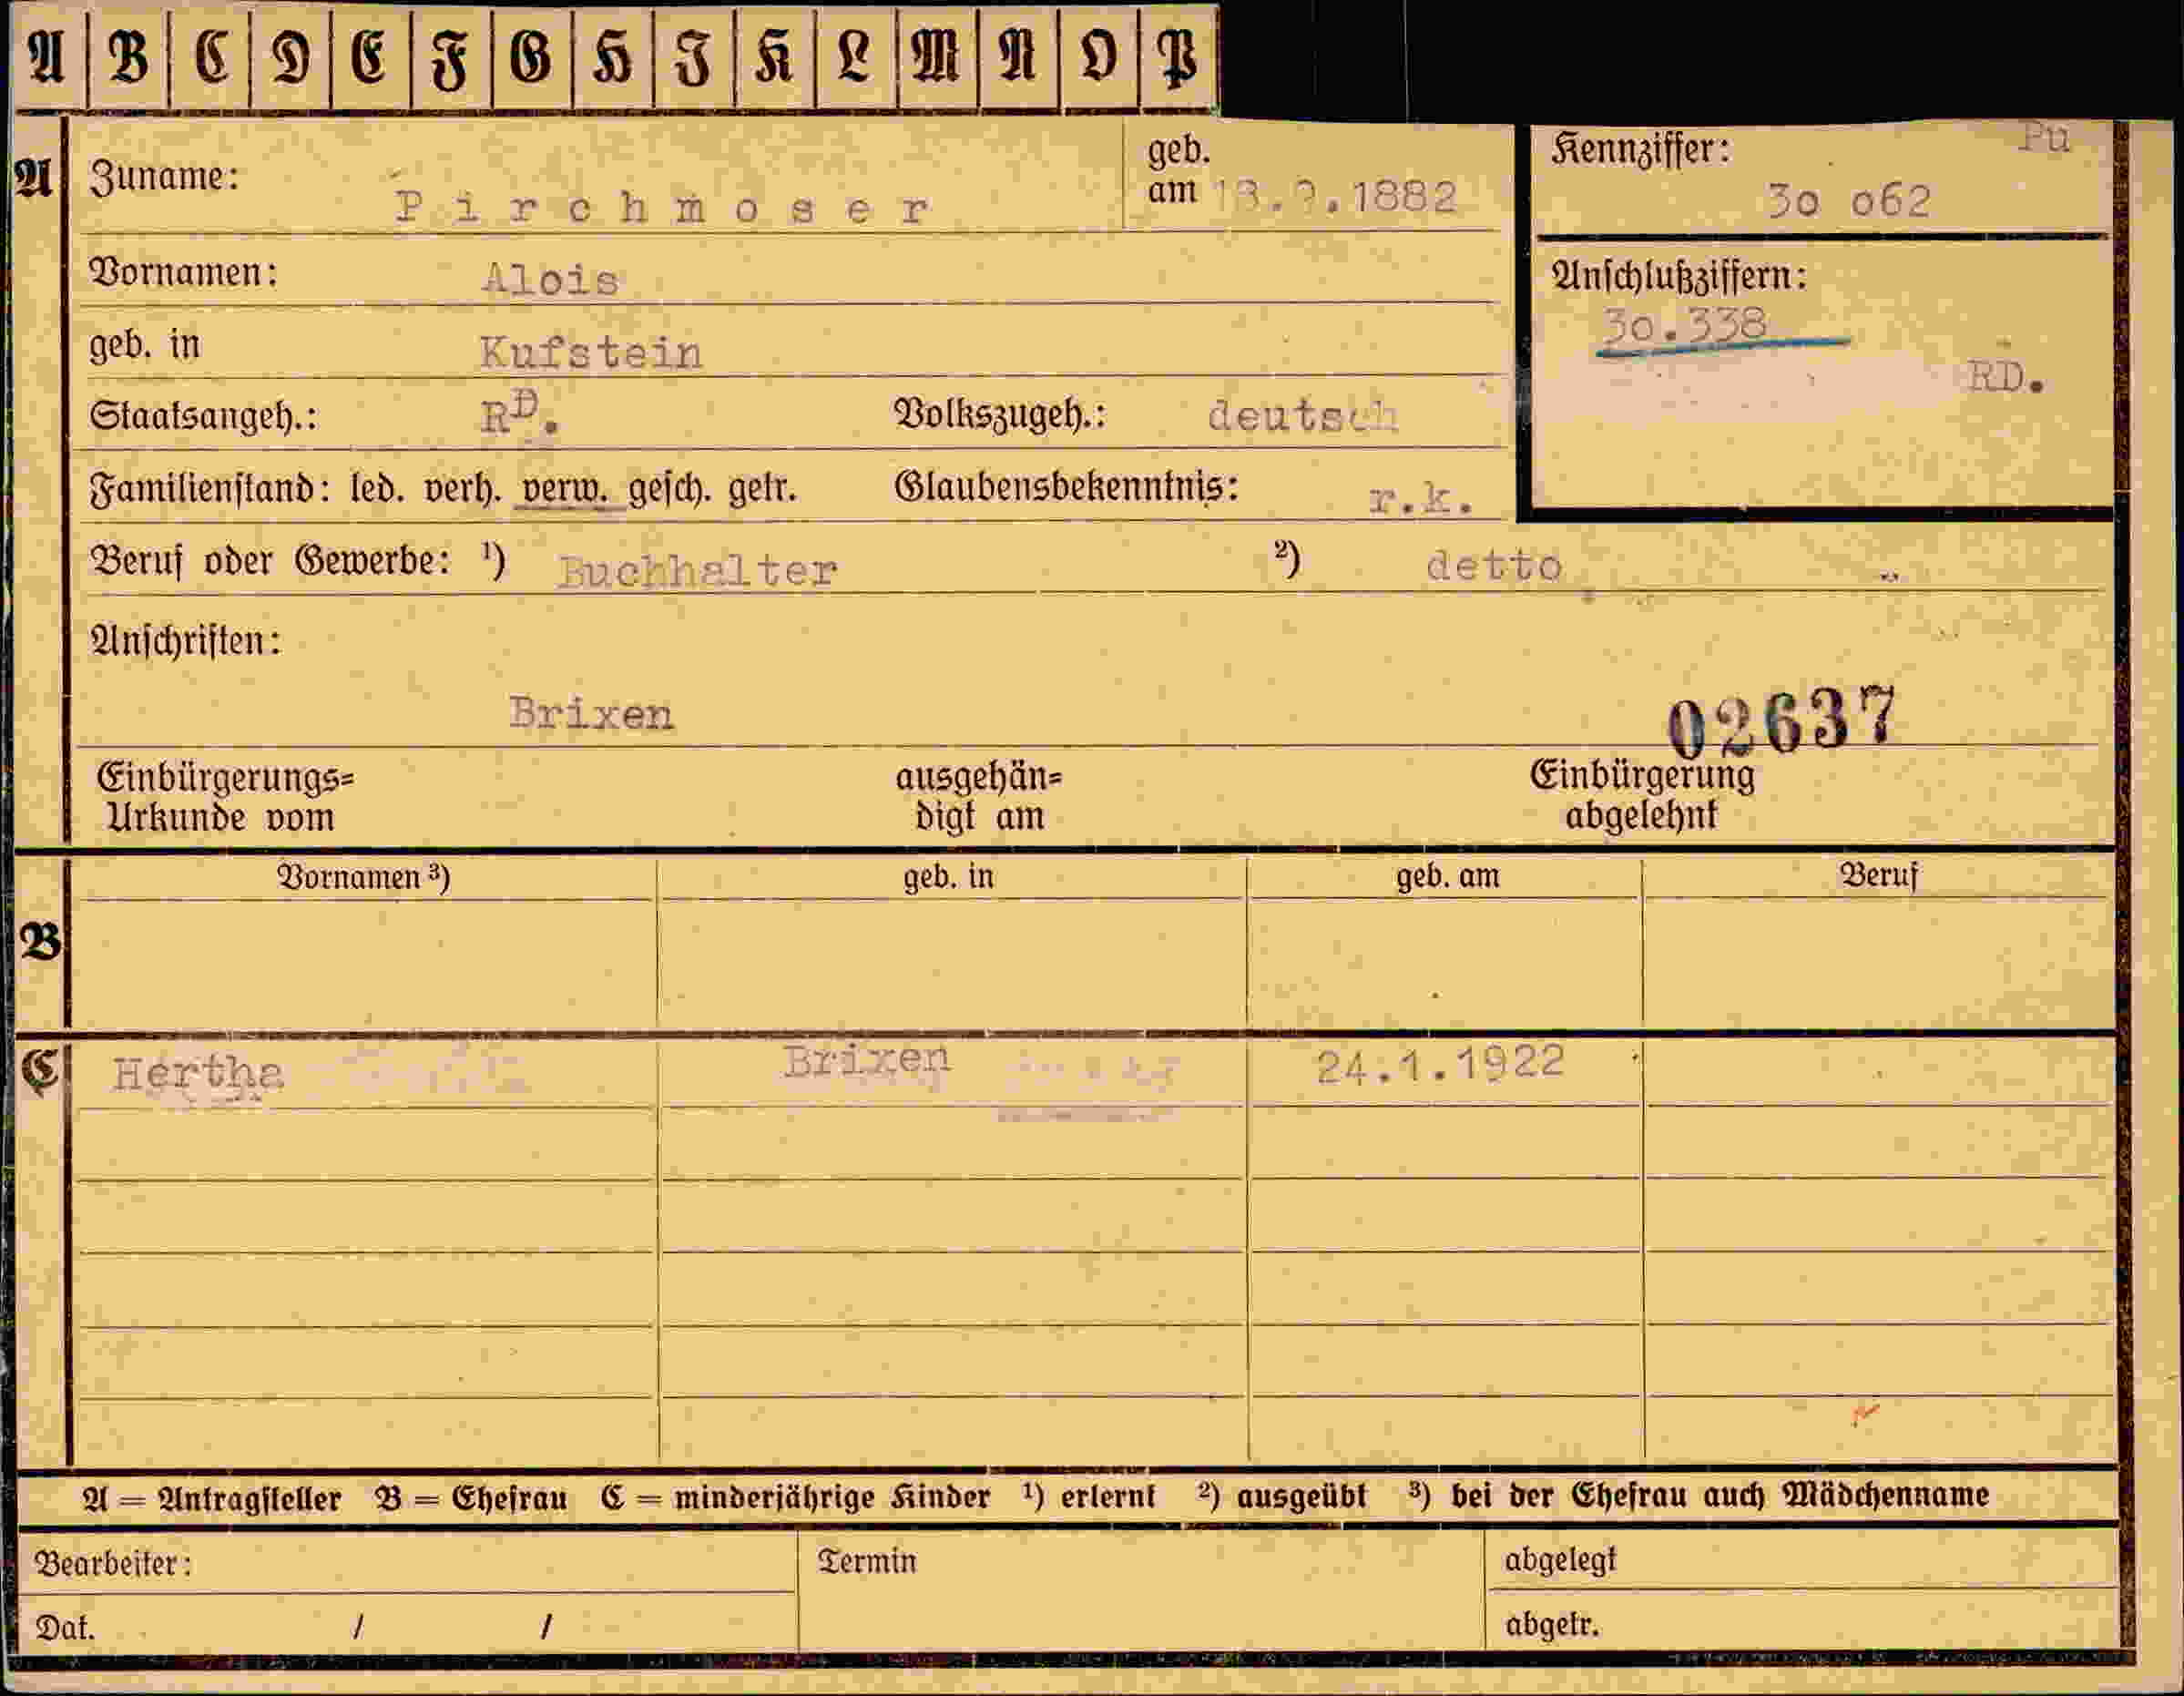 A B C D E F G H I K L M N O P
A Zuname: Pirchmoser geb. am .1882 Kennziffer: Pu
30 062
Vornamen: Alois Anschlußziffern:
30.338
geb. in Kufstein RD.
Staatsangeh.: RD. Volkszugeh.: deutsch
Familienstand: led. verh. verw. gesch. getr. Glaubensbekenntnis: r.k.
Beruf oder Gewerbe: ¹) Buchhalter ²) detto
Anschriften:
Brixen 02637
Einbürgerungs= ausgehän= Einbürgerung
Urkunde vom digt am abgelehnt
Vornamen ³) geb. in geb. am Beruf
B
C Hertha Brixen 24.1.1922
A = Antragsteller B = Ehefrau C = minderjährige Kinder ¹) erlernt ²) ausgeübt ³) bei der Ehefrau auch Mädchenname
Bearbeiter: Termin abgelegt
Dat. / / abgetr.